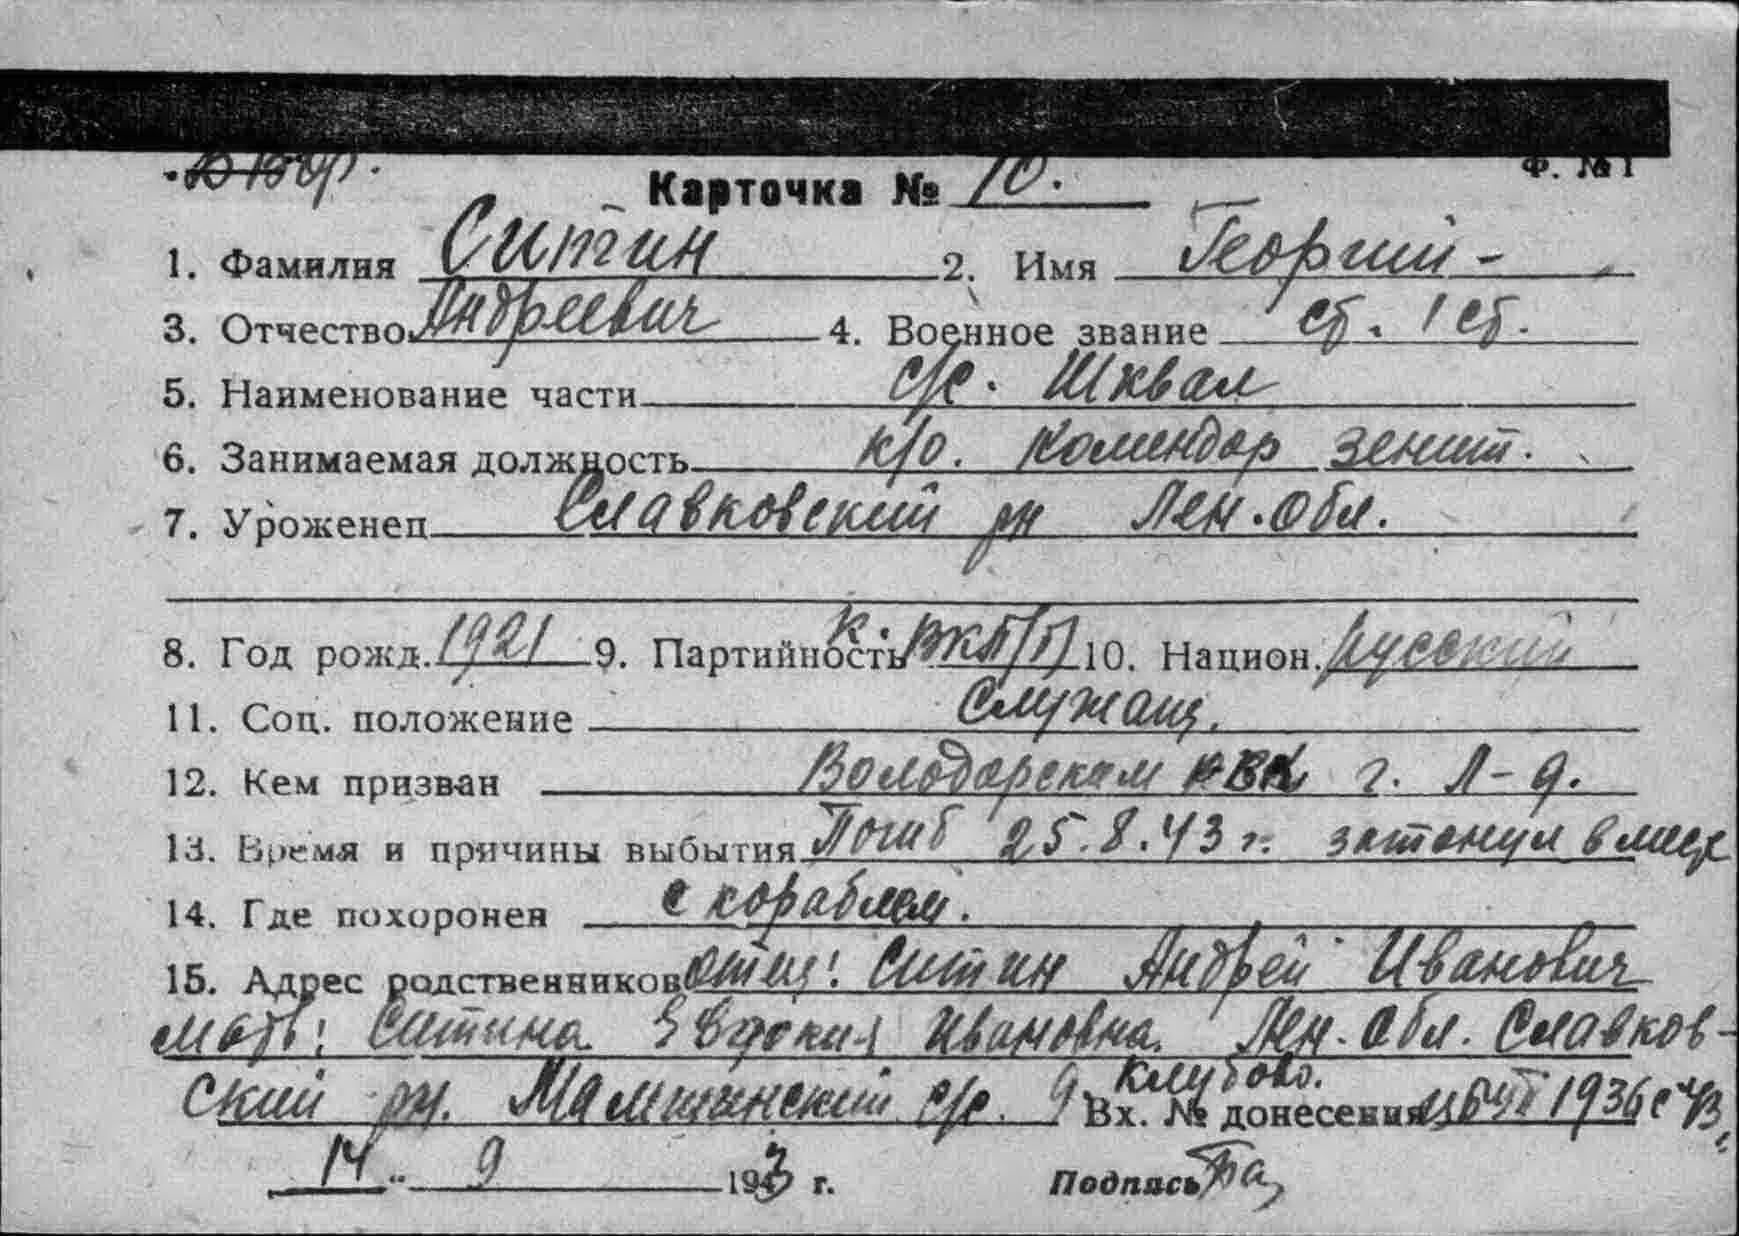 Ф. № 1
Карточка № 10.
1. Фамилия Ситин 2. Имя Георгий -
3. Отчество Андреевич 4. Военное звание ст. 1 ст.
5. Наименование части с/с. Шквал
6. Занимаемая должность к/о. комендор зенит.
7. Уроженец Славковский рн Лен. Обл.
8. Год рожд. 1921 9. Партийность К. ВКП/б/ 10. Национ. русский
11. Соц. положение Служащ.
12. Кем призван Володарским РВК г. Л-д.
13. Время и причины выбытия Погиб 25.8.43 г. затонул вместе
14. Где похоронен с кораблем.
15. Адрес родственников отец: Ситин Андрей Иванович
мать: Ситина Евдокия Ивановна. Лен. Обл. Славков-
ский рн. Малитинский с/с. д. Клубово.
Вх. № донесения 1936с 43
14 " 9 1943 г. Подпись